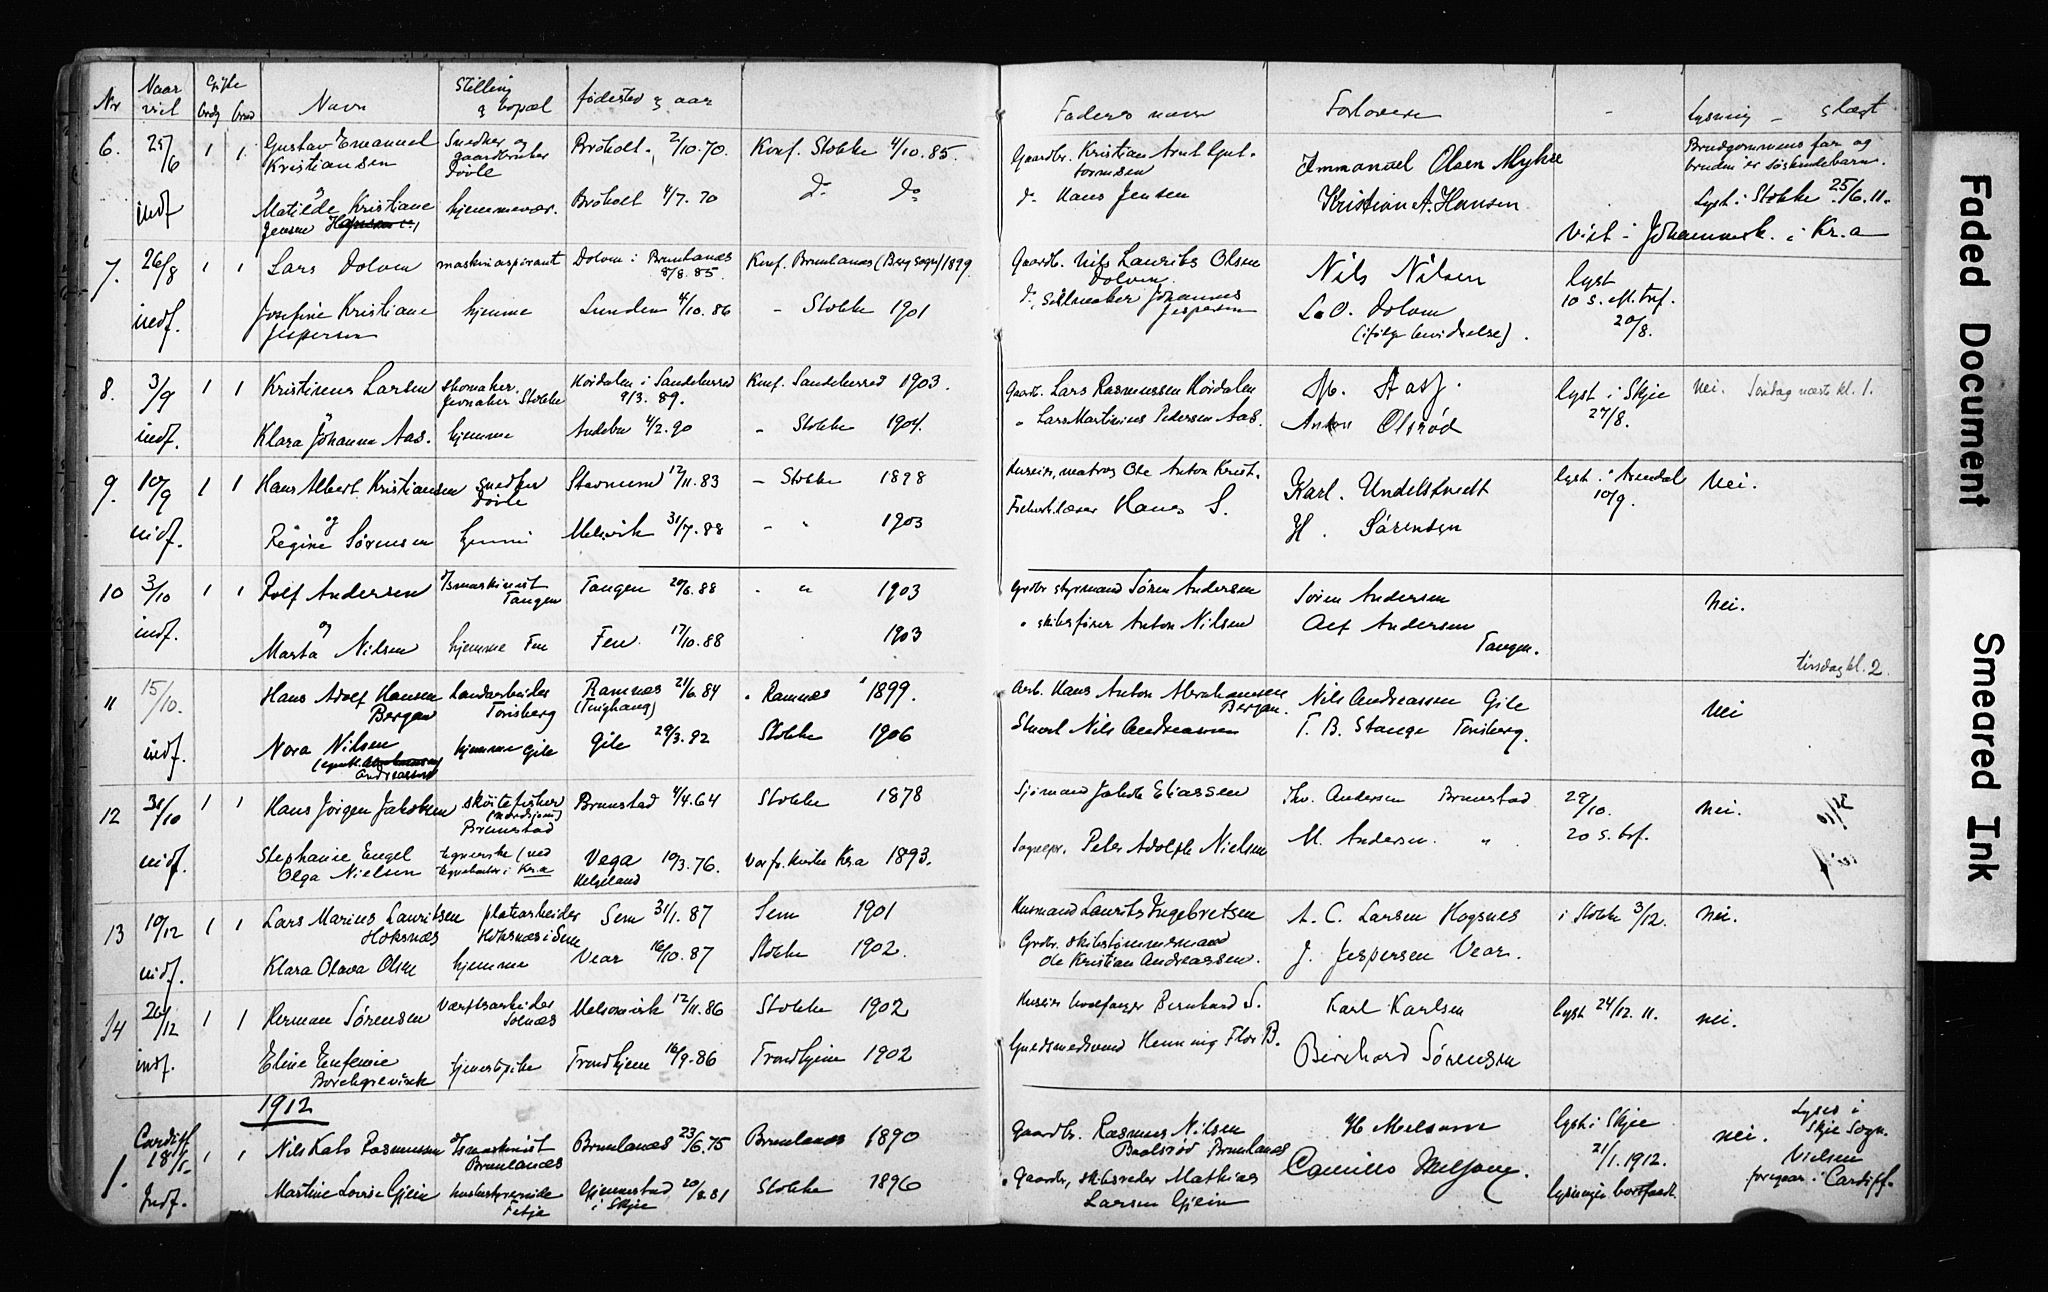 Nr Naar viet Gifte brdg brud Navn Stilling & bopæl fødested & aar Faders navn Forlovere Lysning - slægt
6. 25/6 1 1 Gustav Emanuel Kristiansen Snedker og gaardbruker Dövle Bröholt 2/10.70. Konf. Stokke 4/10.85. Gaardbr. Kristian Immanuel Olsen Myhre Brudgommens far og bruden er søskendebarn.
indf Matilde Kristiane Jensen hjemmevær. Bröholt 4/7.70 do do do Hans Jensen Kristian A. Hansen Lyst i Stokke 25/6.11.
Viet i Johannesk. i Kr.a
7. 26/8 1 1 Lars Dolven maskinaspirant Dolven i Brunlanæs 8/8.85. Konf. Brunlanæs (Berg sogn) 1899 Gaardb. Nils Laurits Olsen Dolven Nils Nilsen lyst
indf. Josefine Kristiane Jespersen hjemme Lunden 4/10.86 - Stokke 1901 do, Johannes Jespersen L.O. Dolven (ifølge bevidnelse). 10 s. eft. tref. 20/8.
8. 3/9 1 1 Kristinus Larsen skomaker. Høidalen i Sandeherred 9/3.89. Konf. Sandeherred 1903. Gaardb. Lars Rasmussen Høidalen lyst i Skjee 27/8. nei. Søndag næste kl. 1.
indf. Klara Johanne Aas. hjemme Andebu 4/2.90 " Stokke 1904. " Lars Martinius Pedersen Aas. Anton Olsrød
9. 10/9 1 1 Hans Albert Kristiansen snedker Dövle Stavnum 12/11.83 - Stokke 1898 Huseier, matros Ole Anton Krist. Karl. Undelstvedt lyst i Arendal 10/9. Nei.
indf. og Regine Sørensen hjemme Melsvik 31/7.88 - " 1903 Hans S. H. Sørensen
10 3/10 1 1 Rolf Andersen Tangen Tangen 20/8.88 - " 1903 Grdbr styrmand Sören Andersen Søren Andersen Nei.
indf. og Marta Nilsen hjemme Fen Fen 17/10.88 1903 " skibsfører Anton Nilsen Alf Andersen Tangen.
tirsdag kl. 2.
11 15/10. Hans Adolf Hansen Bergan Landarbeider Tønsberg Ramnæs 21/6.84 (Tinghaug) " Ramnæs 1899. Arb. Hans Anton Abrahamsen Bergan. Nils Andreassen Gile Nei
indf. Nora Nilsen hjemme Gile Gile 29/3.82 Stokke 1906 Nils Andreassen T. B. Stange Tønsberg.
12 31/10 1 1 Hans Jörgen Jakobsen skøitefisker (nordsjøen) Brunstad Brunstad 4/4.64 Stokke 1878 Sjömand Jakob Eliassen Thv. Andersen Brunstad 29/10. nei. 31/10
indf. Stephanie Engel Olga Nielsen Kr.a Vega Helgeland 10/3.76. Vor fr. kirke Kra 1893. Sognepr. Peter Adolph Nielsen M. Andersen. " 20 s. tref.
13 10/12 1 1 Lars Marius Lauritsen Hoksnæs platearbeider Hoksnæs i Sem Sem 31/1.87 Sem 1901 Husmand Laurits Ingebretsen A. C. Larsen Hogsnes i Stokke 3/12. nei.
indf. Klara Olava Olsen hjemme Vear 16/10.87 Stokke 1902. Grdbr. skibstømmermand Ole Kristian Andreassen. J. Jespersen Vear.
14 26/12 1 1 Herman Sørensen Værftsarbeider Solnæs Melsomvik 12/11.86 Stokke 1902 Huseier hvalfanger Bernhard S. Karl Karlsen lyst 24/12.11. nei.
indf. Eline Eufemie Borchgrevinck tjenestepike Trondhjem 16/9.86 Trondhjem 1902 Guldsmedsvend Henning Flor B. Bernhard Sørensen
1912
1. Cardiff 18/5. 1 1 Nils Kato Rasmussen Brunlanæs Brunlanæs 23/6.75 Brunlanæs 1890 Gaardbr. Rasmus Nilsen Brunlanæs H Melsom lyst i Skjee 21/1.1912. nei. Lyses i Skje Sogn.
Indf. Martine Lovise Gjein husbestyrerinde Gjennestad i Skjee 20/8.81 Stokke 1896 " Gaardbr, skibsreder Mathias Larsen Gjein Camillo Melsom. lysningen bortfaldt. Vielsen foregaar i Cardiff.
Faded Document
Smeared Ink